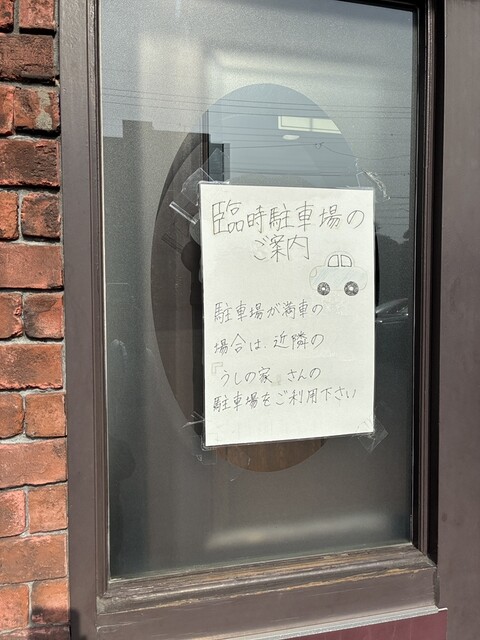 臨時駐車場の
ご案内
駐車場が満車の
場合は、近隣の
『うしの家』さんの
駐車場をご利用下さい